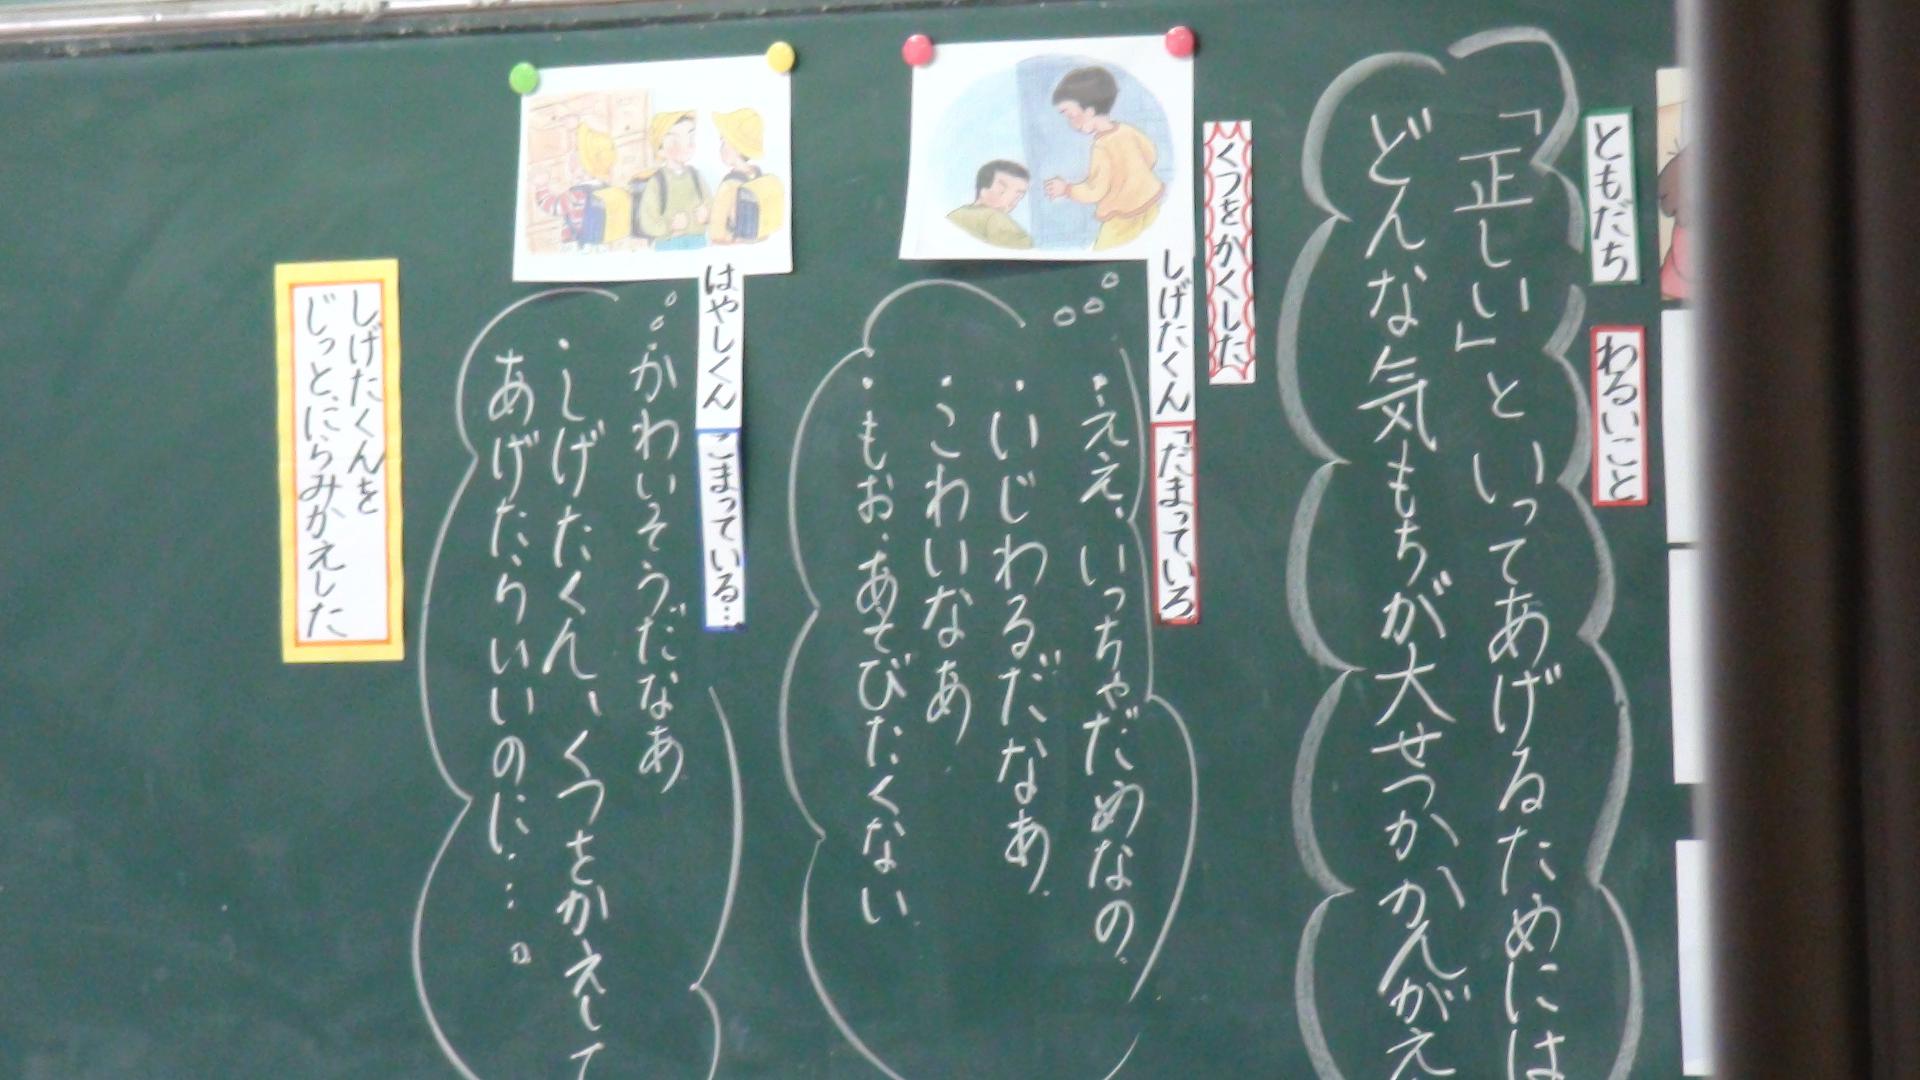 ともだち
わるいこと
「正しい」といってあげるためには
どんな気もちが大せつかかんがえ
くつをかくした
しげたくん
「だまっていろ
・ええ、いっちゃだめなの
・いじわるだなあ
・こわいなあ
・もお、あそびたくない
はやしくん
こまっている…
かわいそうだなあ
・しげたくん、くつをかえして
あげたらいいのに…。
しげたくんを
じっと、にらみかえした